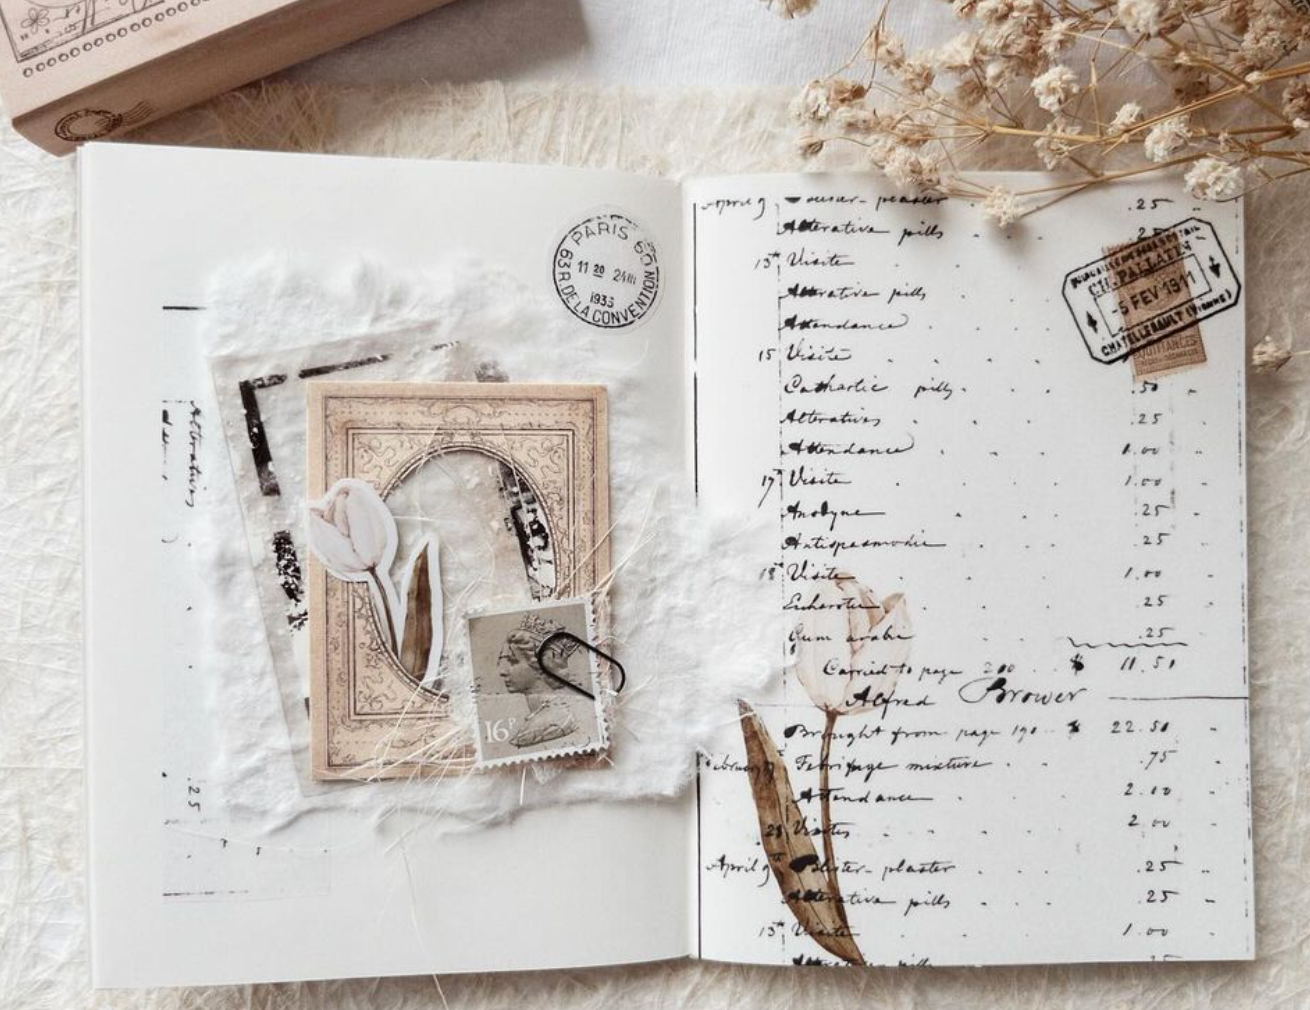 PARIS 60
11 20 24
1935
63 R. DE LA CONVENTION
Alteratives
.25
16P
April 9 plaster .25
Alterative pills
13th Visite
Alterative pills
Attendance
15 Visite
Cathartic pills .50
Alteratives .25
Attendance 1.00
17th Visite 1.00
Anodyne .25
Antispasmodic .25
18th Visite 1.00
.25
Gum arabic .25
Carried to page 200 $ 11.50
Alfred Brower
Brought from page 190 $ 22.50
Febrifuge mixture .75
Attendance 2.00
21 Visites 2.00
April 9th Blister-plaster .25
Alterative pills .25
13th Visite 1.00
-5 FEV 1911
CHATELLERAULT (Vienne)
QUITTANCES